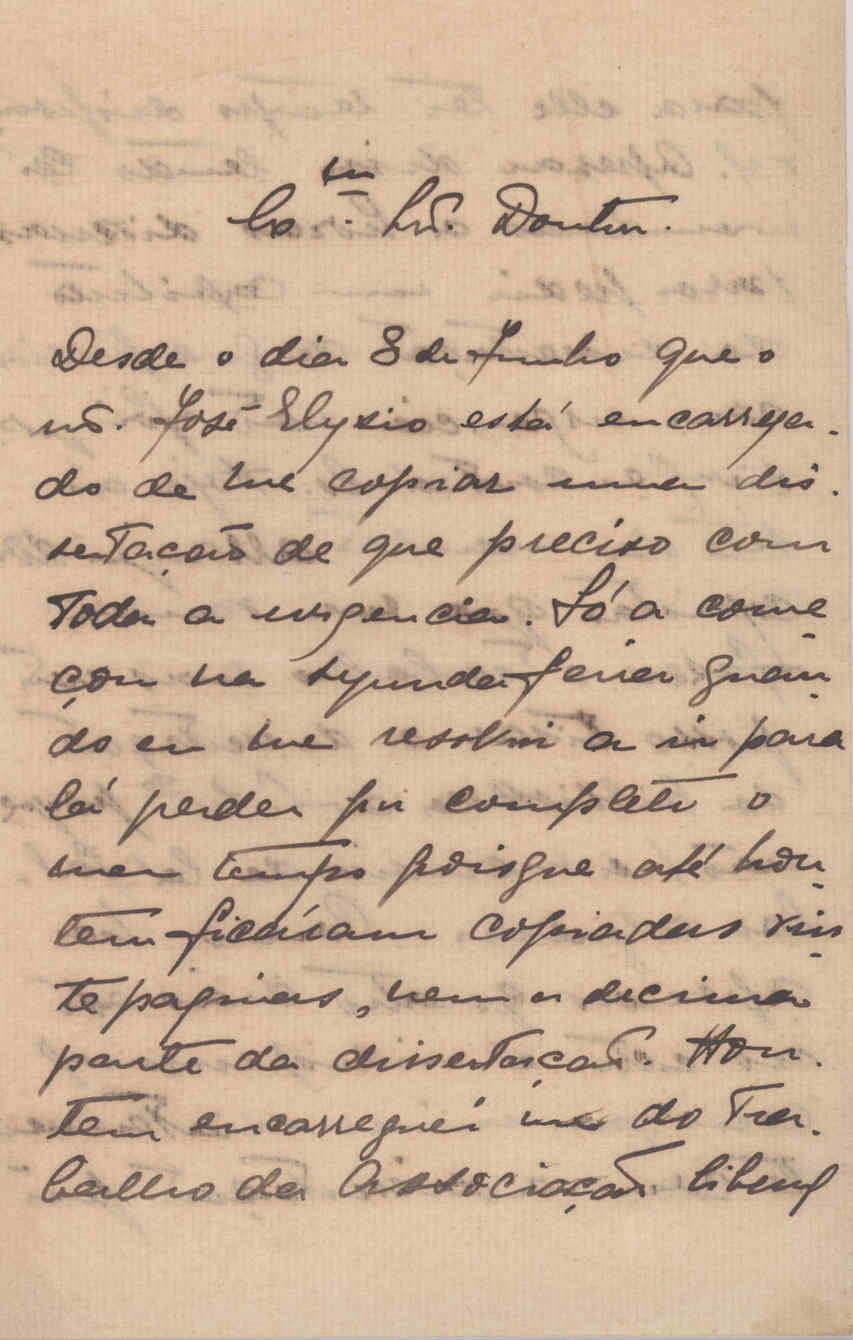 Ex.mo Snr. Doutor.
Desde o dia 8 de Junho que o
snr. José Elysio está encarrega-
do de me copiar uma dis-
sertação de que preciso com
toda a urgencia. Só a come-
çou na segunda-feira quan-
do eu me resolvi a ir para
lá perder por completo o
meu tempo poisque até hon-
tem ficáram copiadas vin-
te paginas, nem a decima
parte da dissertação. Hon-
tem encarreguei-me do tra-
balho da Associação liberal